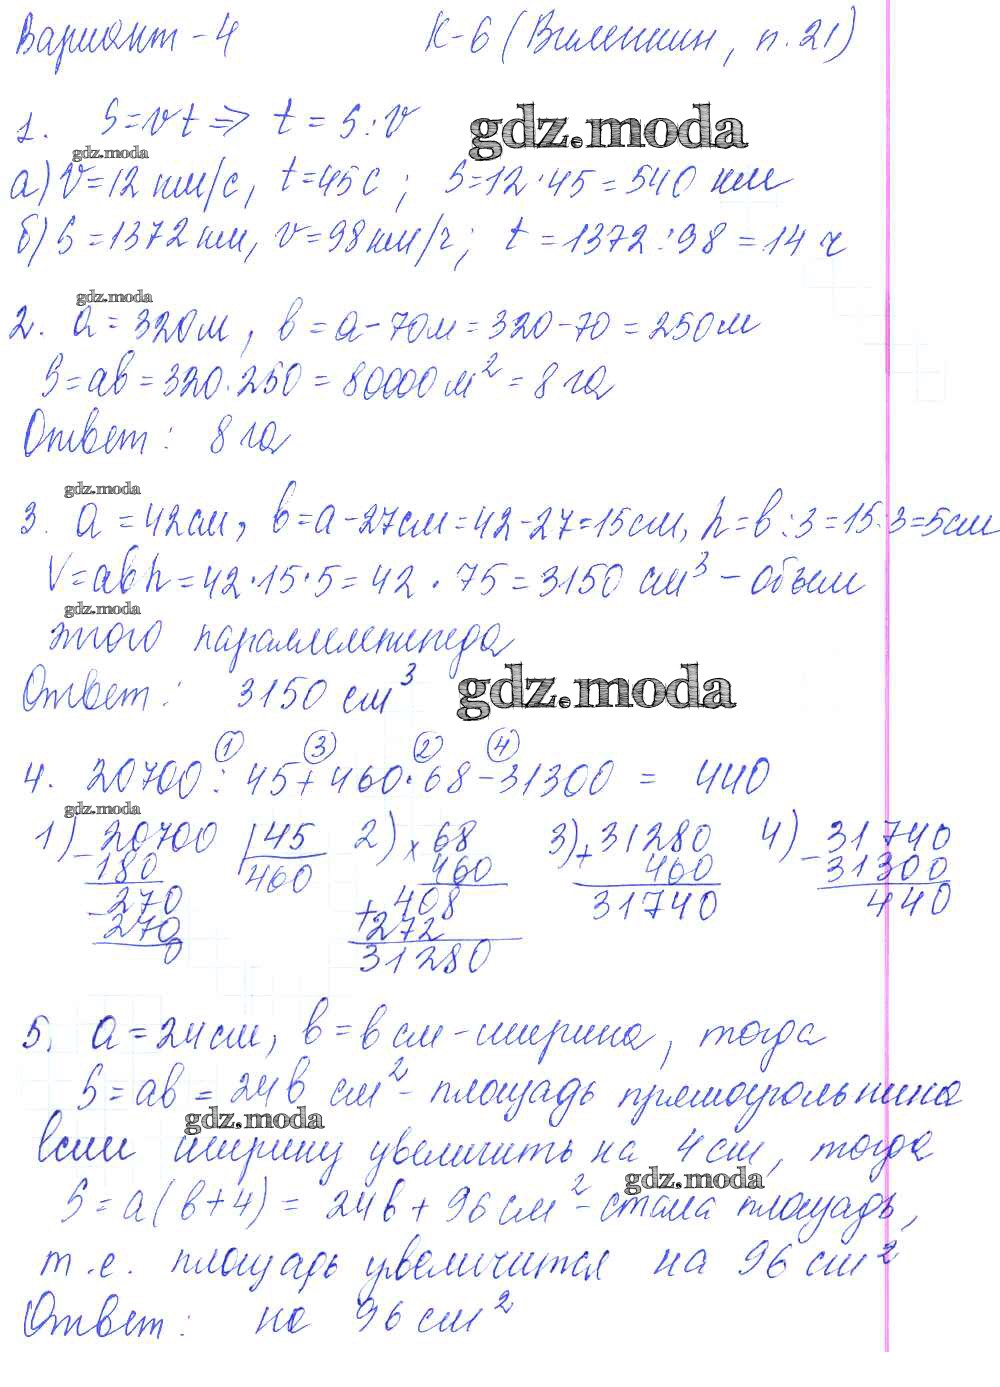 Вариант - 4   К-6 (Виленкин, п. 21)
1. S = vt => t = S : v
gdz.moda
gdz.moda
а) v = 12 км/с, t = 45 с; S = 12 · 45 = 540 км
б) S = 1372 км, v = 98 км/ч; t = 1372 : 98 = 14 ч
gdz.moda
2. a = 320 м, b = a - 70 м = 320 - 70 = 250 м
S = ab = 320 · 250 = 80000 м² = 8 га
Ответ: 8 га
gdz.moda
3. a = 42 см, b = a - 27 см = 42 - 27 = 15 см, h = b : 3 = 15 : 3 = 5 см
V = abh = 42 · 15 · 5 = 42 · 75 = 3150 см³ - объем
gdz.moda
этого параллелепипеда
Ответ: 3150 см³
gdz.moda
① ③ ② ④
4. 20700 : 45 + 460 · 68 - 31300 = 440
gdz.moda
1) - 20700 | 45   2) x 68   3) + 31280   4) - 31740
180   460   460   460   31300
- 270   + 408   31740   440
270   272
0   31280
5. a = 24 см, b = b см - ширина, тогда
S = ab = 24b см² - площадь прямоугольника
gdz.moda
Если ширину увеличить на 4 см, тогда
gdz.moda
S = a(b + 4) = 24b + 96 см² - стала площадь,
т.е. площадь увеличится на 96 см²
Ответ: на 96 см²